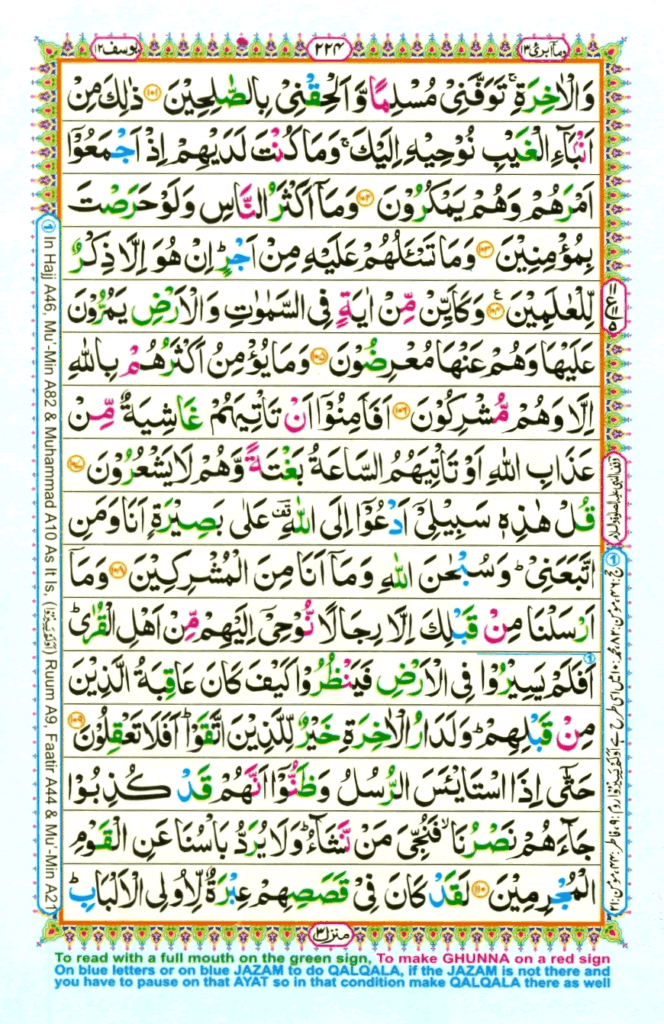 وما ابرئ ١٣
٢٢٤
يوسف ١٢
وَالْاٰخِرَةِ ۚ تَوَفَّنِيْ مُسْلِمًا وَّاَلْحِقْنِيْ بِالصّٰلِحِيْنَ ﴿١٠١﴾ ذٰلِكَ مِنْ
اَنْۢبَآءِ الْغَيْبِ نُوْحِيْهِ اِلَيْكَ ۚ وَمَا كُنْتَ لَدَيْهِمْ اِذْ اَجْمَعُوْۤا
اَمْرَهُمْ وَهُمْ يَمْكُرُوْنَ ﴿١٠٢﴾ وَمَاۤ اَكْثَرُ النَّاسِ وَلَوْ حَرَصْتَ
بِمُؤْمِنِيْنَ ﴿١٠٣﴾ وَمَا تَسْـَٔلُهُمْ عَلَيْهِ مِنْ اَجْرٍ ؕ اِنْ هُوَ اِلَّا ذِكْرٌ
لِّلْعٰلَمِيْنَ ﴿١٠٤﴾ ع وَكَاَيِّنْ مِّنْ اٰيَةٍ فِي السَّمٰوٰتِ وَالْاَرْضِ يَمُرُّوْنَ
عَلَيْهَا وَهُمْ عَنْهَا مُعْرِضُوْنَ ﴿١٠٥﴾ وَمَا يُؤْمِنُ اَكْثَرُهُمْ بِاللّٰهِ
اِلَّا وَهُمْ مُّشْرِكُوْنَ ﴿١٠٦﴾ اَفَاَمِنُوْۤا اَنْ تَاْتِيَهُمْ غَاشِيَةٌ مِّنْ
عَذَابِ اللّٰهِ اَوْ تَاْتِيَهُمُ السَّاعَةُ بَغْتَةً وَّهُمْ لَا يَشْعُرُوْنَ ﴿١٠٧﴾
قُلْ هٰذِهٖ سَبِيْلِيْۤ اَدْعُوْۤا اِلَى اللّٰهِ ؔ۫ عَلٰى بَصِيْرَةٍ اَنَا وَمَنِ
اتَّبَعَنِيْ ؕ وَسُبْحٰنَ اللّٰهِ وَمَاۤ اَنَا مِنَ الْمُشْرِكِيْنَ ﴿١٠٨﴾ وَمَاۤ
اَرْسَلْنَا مِنْ قَبْلِكَ اِلَّا رِجَالًا نُّوْحِيْۤ اِلَيْهِمْ مِّنْ اَهْلِ الْقُرٰى ؕ
اَفَلَمْ يَسِيْرُوْا فِي الْاَرْضِ فَيَنْظُرُوْا كَيْفَ كَانَ عَاقِبَةُ الَّذِيْنَ
مِنْ قَبْلِهِمْ ؕ وَلَدَارُ الْاٰخِرَةِ خَيْرٌ لِّلَّذِيْنَ اتَّقَوْا ؕ اَفَلَا تَعْقِلُوْنَ ﴿١٠٩﴾
حَتّٰۤى اِذَا اسْتَايْـَٔسَ الرُّسُلُ وَظَنُّوْۤا اَنَّهُمْ قَدْ كُذِبُوْا
جَآءَهُمْ نَصْرُنَا ۙ فَنُجِّيَ مَنْ نَّشَآءُ ؕ وَلَا يُرَدُّ بَاْسُنَا عَنِ الْقَوْمِ
الْمُجْرِمِيْنَ ﴿١١٠﴾ لَقَدْ كَانَ فِيْ قَصَصِهِمْ عِبْرَةٌ لِّاُولِي الْاَلْبَابِ ؕ
منزل ٣
In Hajj A46, Mu'-Min A82 & Muhammad A10 As It Is, Ruum A9, Faatir A44 & Mu'-Min A21
To read with a full mouth on the green sign, To make GHUNNA on a red sign
On blue letters or on blue JAZAM to do QALQALA, if the JAZAM is not there and
you have to pause on that AYAT so in that condition make QALQALA there as well